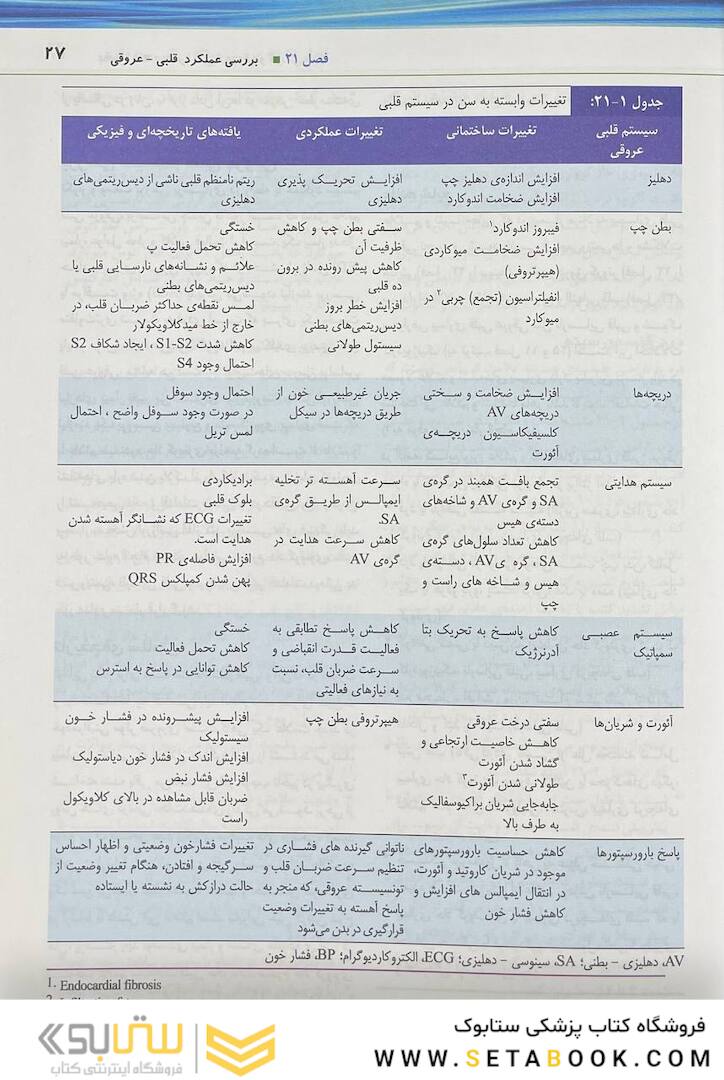 فصل ۲۱ ■ بررسی عملکرد قلبی - عروقی
۲۷
جدول ۱-۲۱: تغییرات وابسته به سن در سیستم قلبی
سیستم قلبی عروقی
تغییرات ساختمانی
تغییرات عملکردی
یافته‌های تاریخچه‌ای و فیزیکی
دهلیز
افزایش اندازه‌ی دهلیز چپ
افزایش ضخامت اندوکارد
افزایش تحریک پذیری
دهلیزی
ریتم نامنظم قلبی ناشی از دیس‌ریتمی‌های
دهلیزی
بطن چپ
فیبروز اندوکارد۱
افزایش ضخامت میوکاردی
(هیپرتروفی)
انفیلتراسیون (تجمع) چربی۲ در
میوکارد
سفتی بطن چپ و کاهش
ظرفیت آن
کاهش پیش رونده در برون
ده قلبی
افزایش خطر بروز
دیس‌ریتمی‌های بطنی
سیستول طولانی
خستگی
کاهش تحمل فعالیت پ
علائم و نشانه‌های نارسایی قلبی یا
دیس‌ریتمی‌های بطنی
لمس نقطه‌ی حداکثر ضربان قلب، در
خارج از خط میدکلاویکولار
کاهش شدت S1-S2 ، ایجاد شکاف S2
احتمال وجود S4
دریچه‌ها
افزایش ضخامت و سختی
دریچه‌های AV
کلسیفیکاسیون دریچه‌ی
آئورت
جریان غیرطبیعی خون از
طریق دریچه‌ها در سیکل
احتمال وجود سوفل
در صورت وجود سوفل واضح ، احتمال
لمس تریل
سیستم هدایتی
تجمع بافت همبند در گره‌ی
SA و گره‌ی AV و شاخه‌های
دسته‌ی هیس
کاهش تعداد سلول‌های گره‌ی
SA ، گره ی AV ، دسته‌ی
هیس و شاخه های راست و
چپ
سرعت آهسته تر تخلیه
ایمپالس از طریق گره‌ی
SA.
کاهش سرعت هدایت در
گره‌ی AV
برادیکاردی
بلوک قلبی
تغییرات ECG که نشانگر آهسته شدن
هدایت است.
افزایش فاصله‌ی PR
پهن شدن کمپلکس QRS
سیستم عصبی
سمپاتیک
کاهش پاسخ به تحریک بتا
آدرنرژیک
کاهش پاسخ تطابقی به
فعالیت قدرت انقباضی و
سرعت ضربان قلب، نسبت
به نیازهای فعالیتی
خستگی
کاهش تحمل فعالیت
کاهش توانایی در پاسخ به استرس
آئورت و شریان‌ها
سفتی درخت عروقی
کاهش خاصیت ارتجاعی و
گشاد شدن آئورت
طولانی شدن آئورت۳
جابه‌جایی شریان براکیوسفالیک
به طرف بالا
هیپرتروفی بطن چپ
افزایش پیشرونده در فشار خون
سیستولیک
افزایش اندک در فشار خون دیاستولیک
افزایش فشار نبض
ضربان قابل مشاهده در بالای کلاویکول
راست
پاسخ بارورسپتورها
کاهش حساسیت بارورسپتورهای
موجود در شریان کاروتید و آئورت،
در انتقال ایمپالس های افزایش و
کاهش فشار خون
ناتوانی گیرنده های فشاری در
تنظیم سرعت ضربان قلب و
تونیسیته عروقی، که منجر به
پاسخ آهسته به تغییرات وضعیت
قرارگیری در بدن می‌شود
تغییرات فشارخون وضعیتی و اظهار احساس
سرگیجه و افتادن، هنگام تغییر وضعیت از
حالت درازکش به نشسته یا ایستاده
AV، دهلیزی - بطنی؛ SA، سینوسی - دهلیزی؛ ECG، الکتروکاردیوگرام؛ BP، فشار خون
1. Endocardial fibrosis
فروشگاه کتاب پزشکی ستابوک
WWW.SETABOOK.COM
ستابوک
فروشگاه اینترنتی کتاب